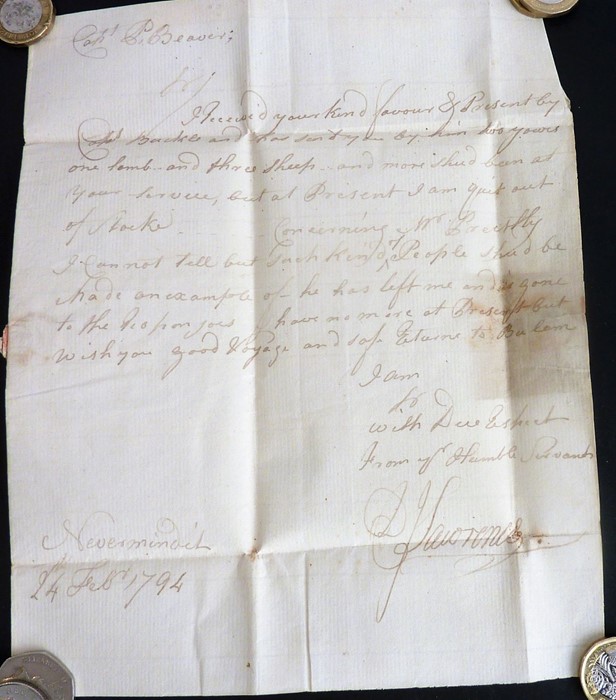 Capt P. Beaver;
Sr
I Receivd your kind favour & Present by
Capt and has send you by him two yowes
one lamb and three sheep and more shud ben at
your Service, but at Present I am quit out
of Stocke Concerning Mr Preestly
I Cannot tell but Such Kind of People shud be
Made an example of he has left me and is gone
to the I have no more at Present but
Wish you good Voyage and safe Returns to Bulam
I am
Sr
with Due Espect
From yr Humble Servant
J Lawrence
Nevermindit
24 Febr 1794